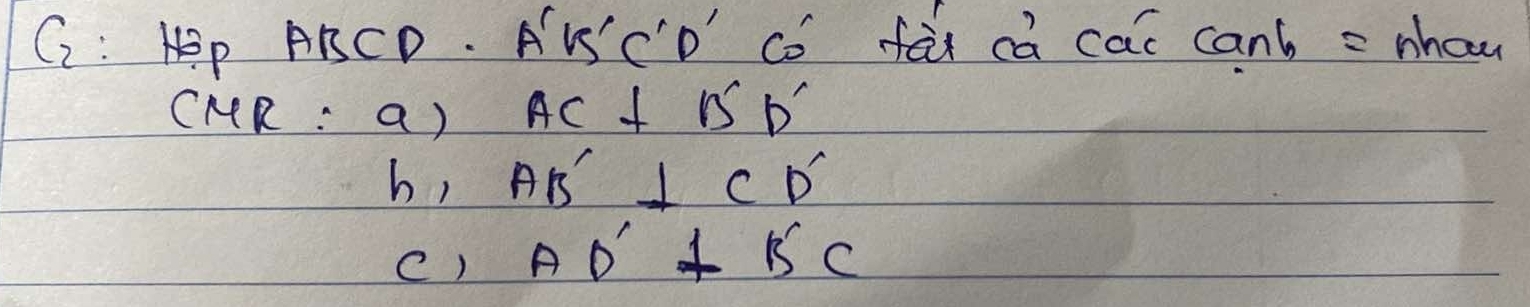 C₂: Hộp ABCD . A'B'C'D' có tất cả các cạnh = nhau
CMR : a) AC ⊥ B'D'
b, AB' ⊥ CD'
c) AD' ⊥ B'C